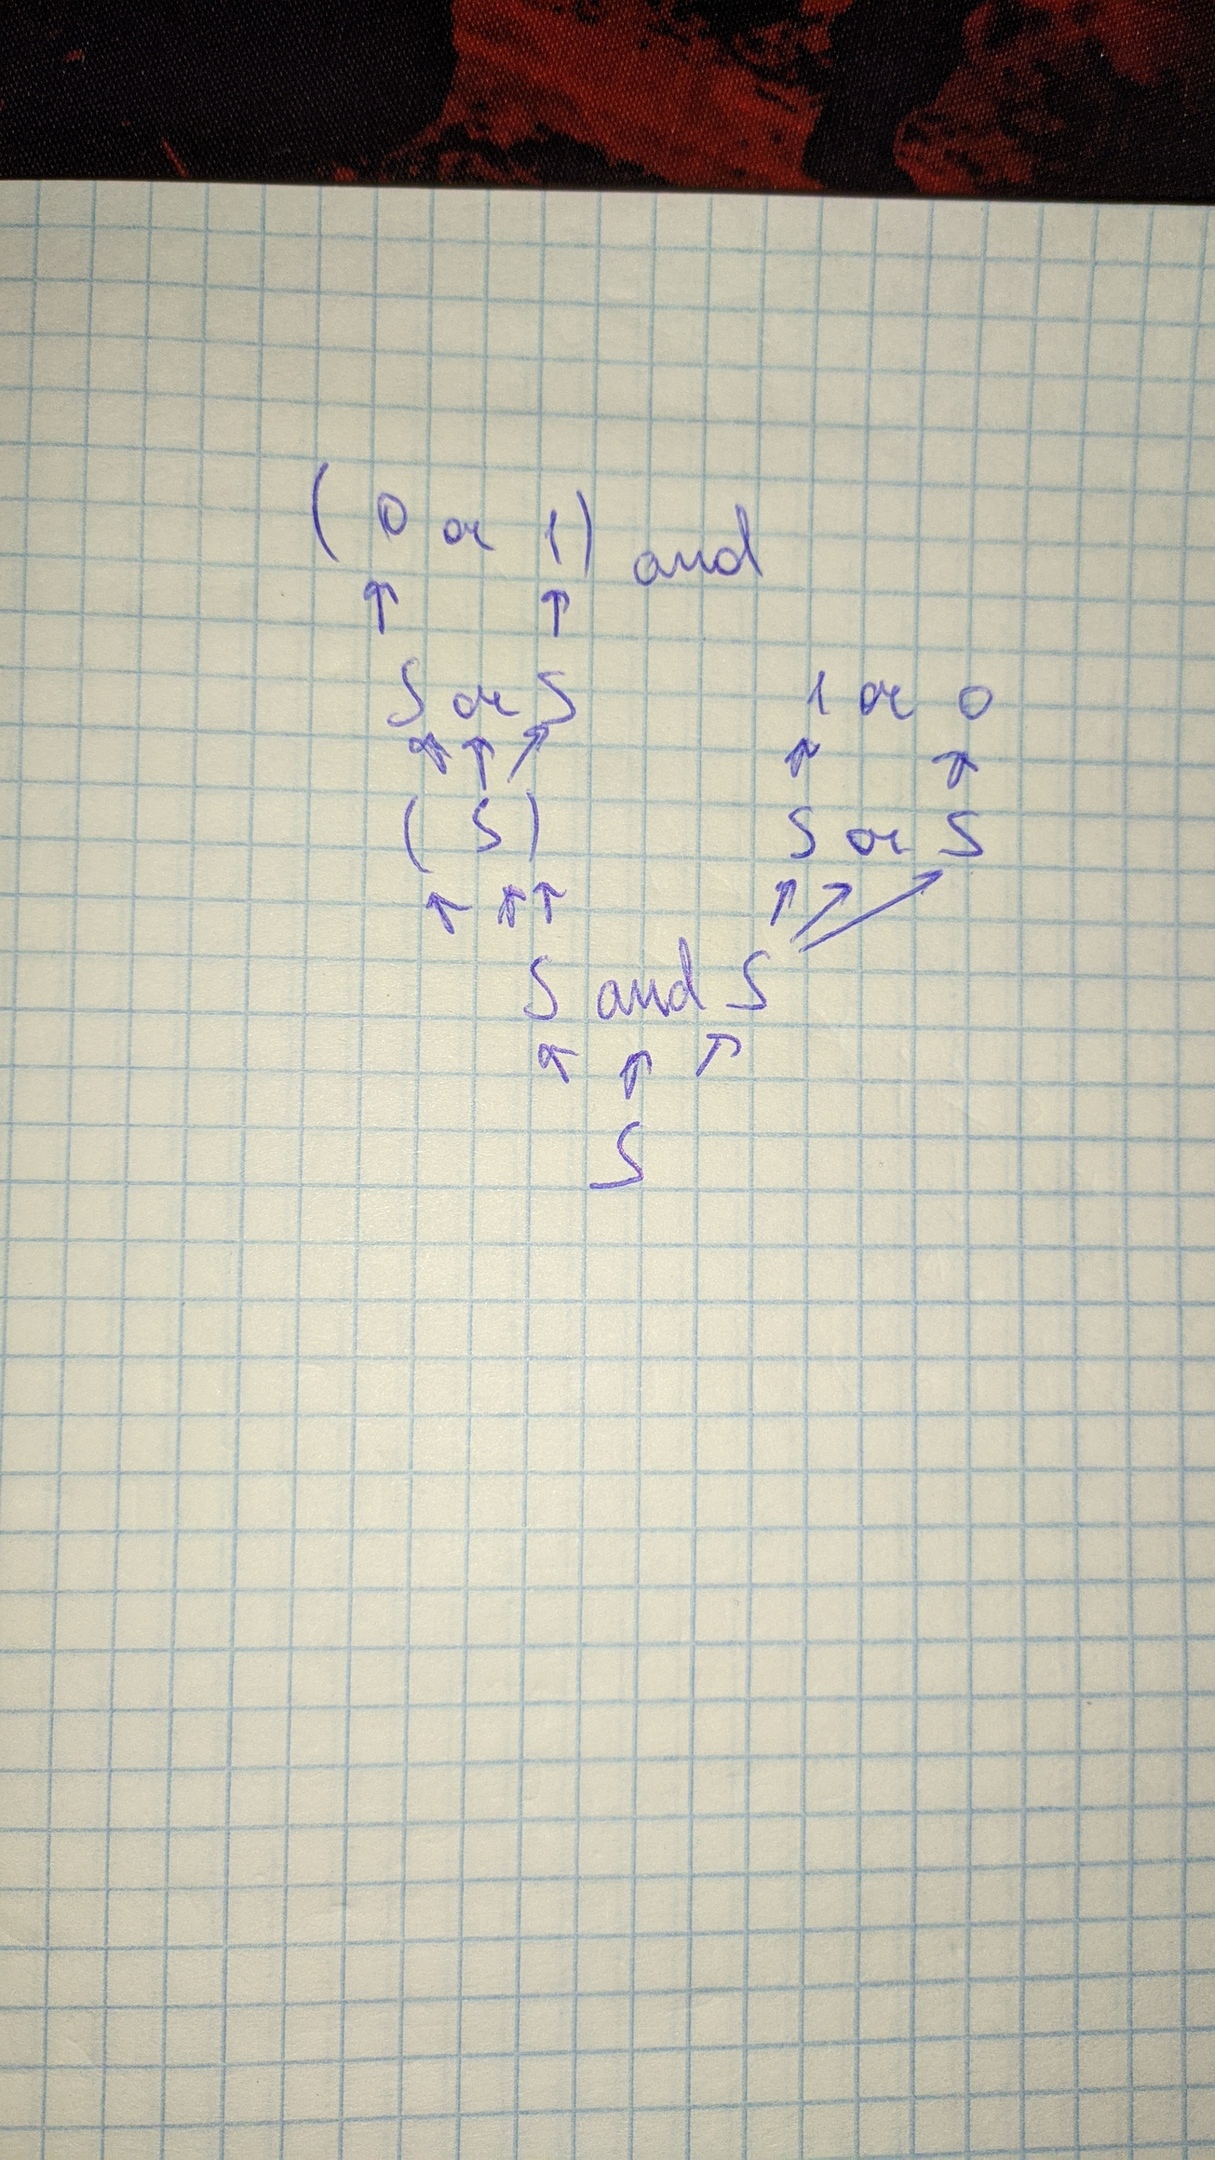 ( 0 or 1 ) and
↑ ↑
S or S 1 or 0
↑ ↑ ↗ ↑ ↑
( S ) S or S
↑ ↑ ↑ ↑ ↗ ↗
S and S
↑ ↑ ↗
S